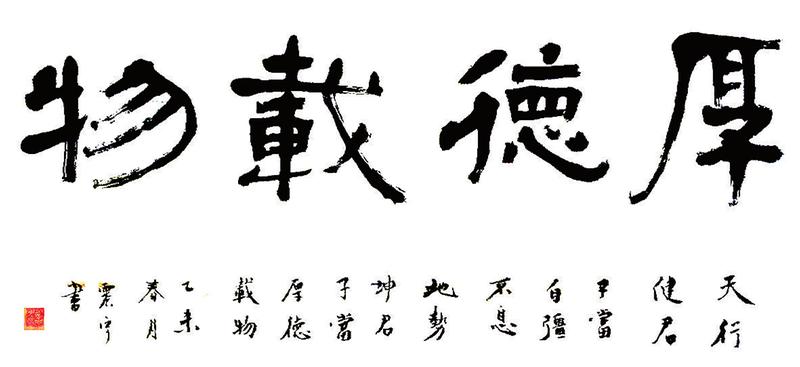 厚德載物
天行
健君
子當
自彊
不息
地勢
坤君
子當
厚德
載物
乙未
春月
震宇
書